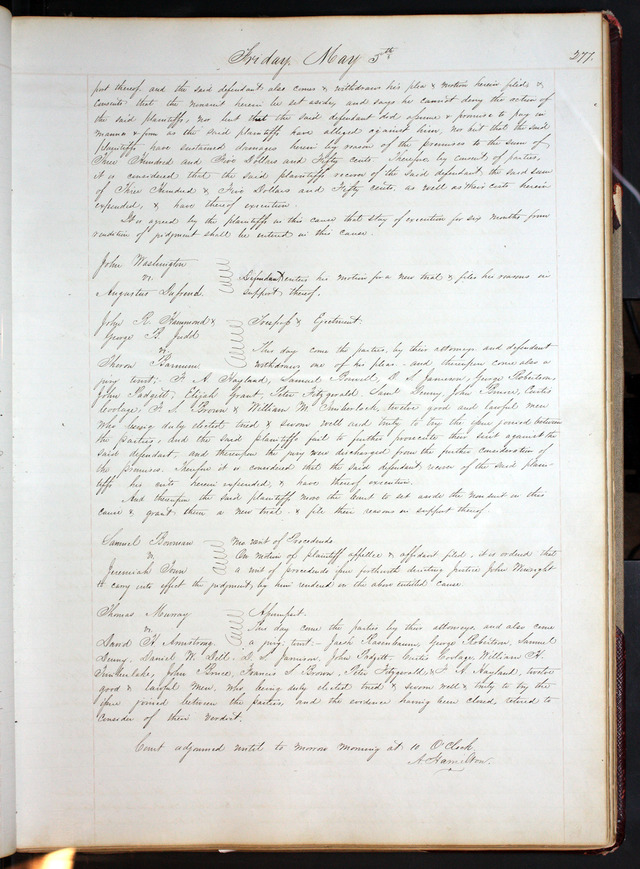 Friday, May 5th 277.
put thereof, and the said defendant also comes & withdraws his plea & motion herein filed, &
consents that the nonsuit herein be set aside, and says he cannot deny the action of
the said plaintiffs, nor but that the said defendant did assume & promise to pay in
manner & form as the said plaintiffs have alleged against him, nor but that the said
plaintiffs have sustained damages herein by reason of the premises to the sum of
Three Hundred and Five Dollars and Fifty cents. Therefore by consent of parties,
it is considered that the said plaintiffs recover of the said defendant, the said sum
of Three Hundred & Five Dollars and Fifty cents, as well as their costs herein
expended, & have thereof execution.
It is agreed by the plaintiffs in this cause that stay of execution for six months from
rendition of judgment shall be entered in this cause.
John Washington
vs.
Augustus Dufrond.
Defendant enters his motion for a new trial & files his reasons in
support thereof.
John R. Hammond &
George B. Judd
vs.
Barnum
Trespass & Ejectment.
This day come the parties, by their attorneys and defendant
withdraws one of his pleas - and thereupon come also a
jury to wit; F. A. Hayland, Samuel Powell, D. S. Jamison, George Robertson,
John Padgett, Elijah Grant, Peter Fitzgerald, Saml Denny, John Bruce, Curtis
Corlage, F. S. Brown & William H. Timberlock, twelve good and lawful men
who being duly elected tried & sworn well and truly to try the issue joined between
the parties, and the said plaintiffs fail to further prosecute their suit against the
said defendant, and thereupon the jury were discharged from the further consideration of
the premises. Therefore it is considered that the said defendant recover of the said plain-
tiffs his costs herein expended, & have thereof execution.
And thereupon the said plaintiffs move the Court to set aside the nonsuit in this
cause & grant them a new trial & file their reasons in support thereof.
Samuel Bonneau
vs.
Jeremiah
Mo. writ of Procedendo
On motion of plaintiff appellee & affidavit filed, it is ordered that
a writ of procedendo issue forthwith directing Justice John
to carry into effect the judgment, by him rendered in the above entitled cause.
Thomas Murray
vs.
David H. Armstrong.
Assumpsit.
This day come the parties by their attorneys, and also come
a jury to wit:- Jacob Rosenbaum, George Robertson, Samuel
Denny, Daniel W. Bell, D. S. Jamison, John Padgett, Curtis Corlage, William H.
Timberlake, John Bruce, Francis S. Brown, Peter Fitzgerald & F. A. Hayland, twelve
good & lawful men, who being duly elected tried & sworn well & truly to try the
issue joined between the parties, and the evidence having been closed, retired to
consider of their verdict.
Court adjourned until to morrow morning at 10 O'Clock.
A. Hamilton.